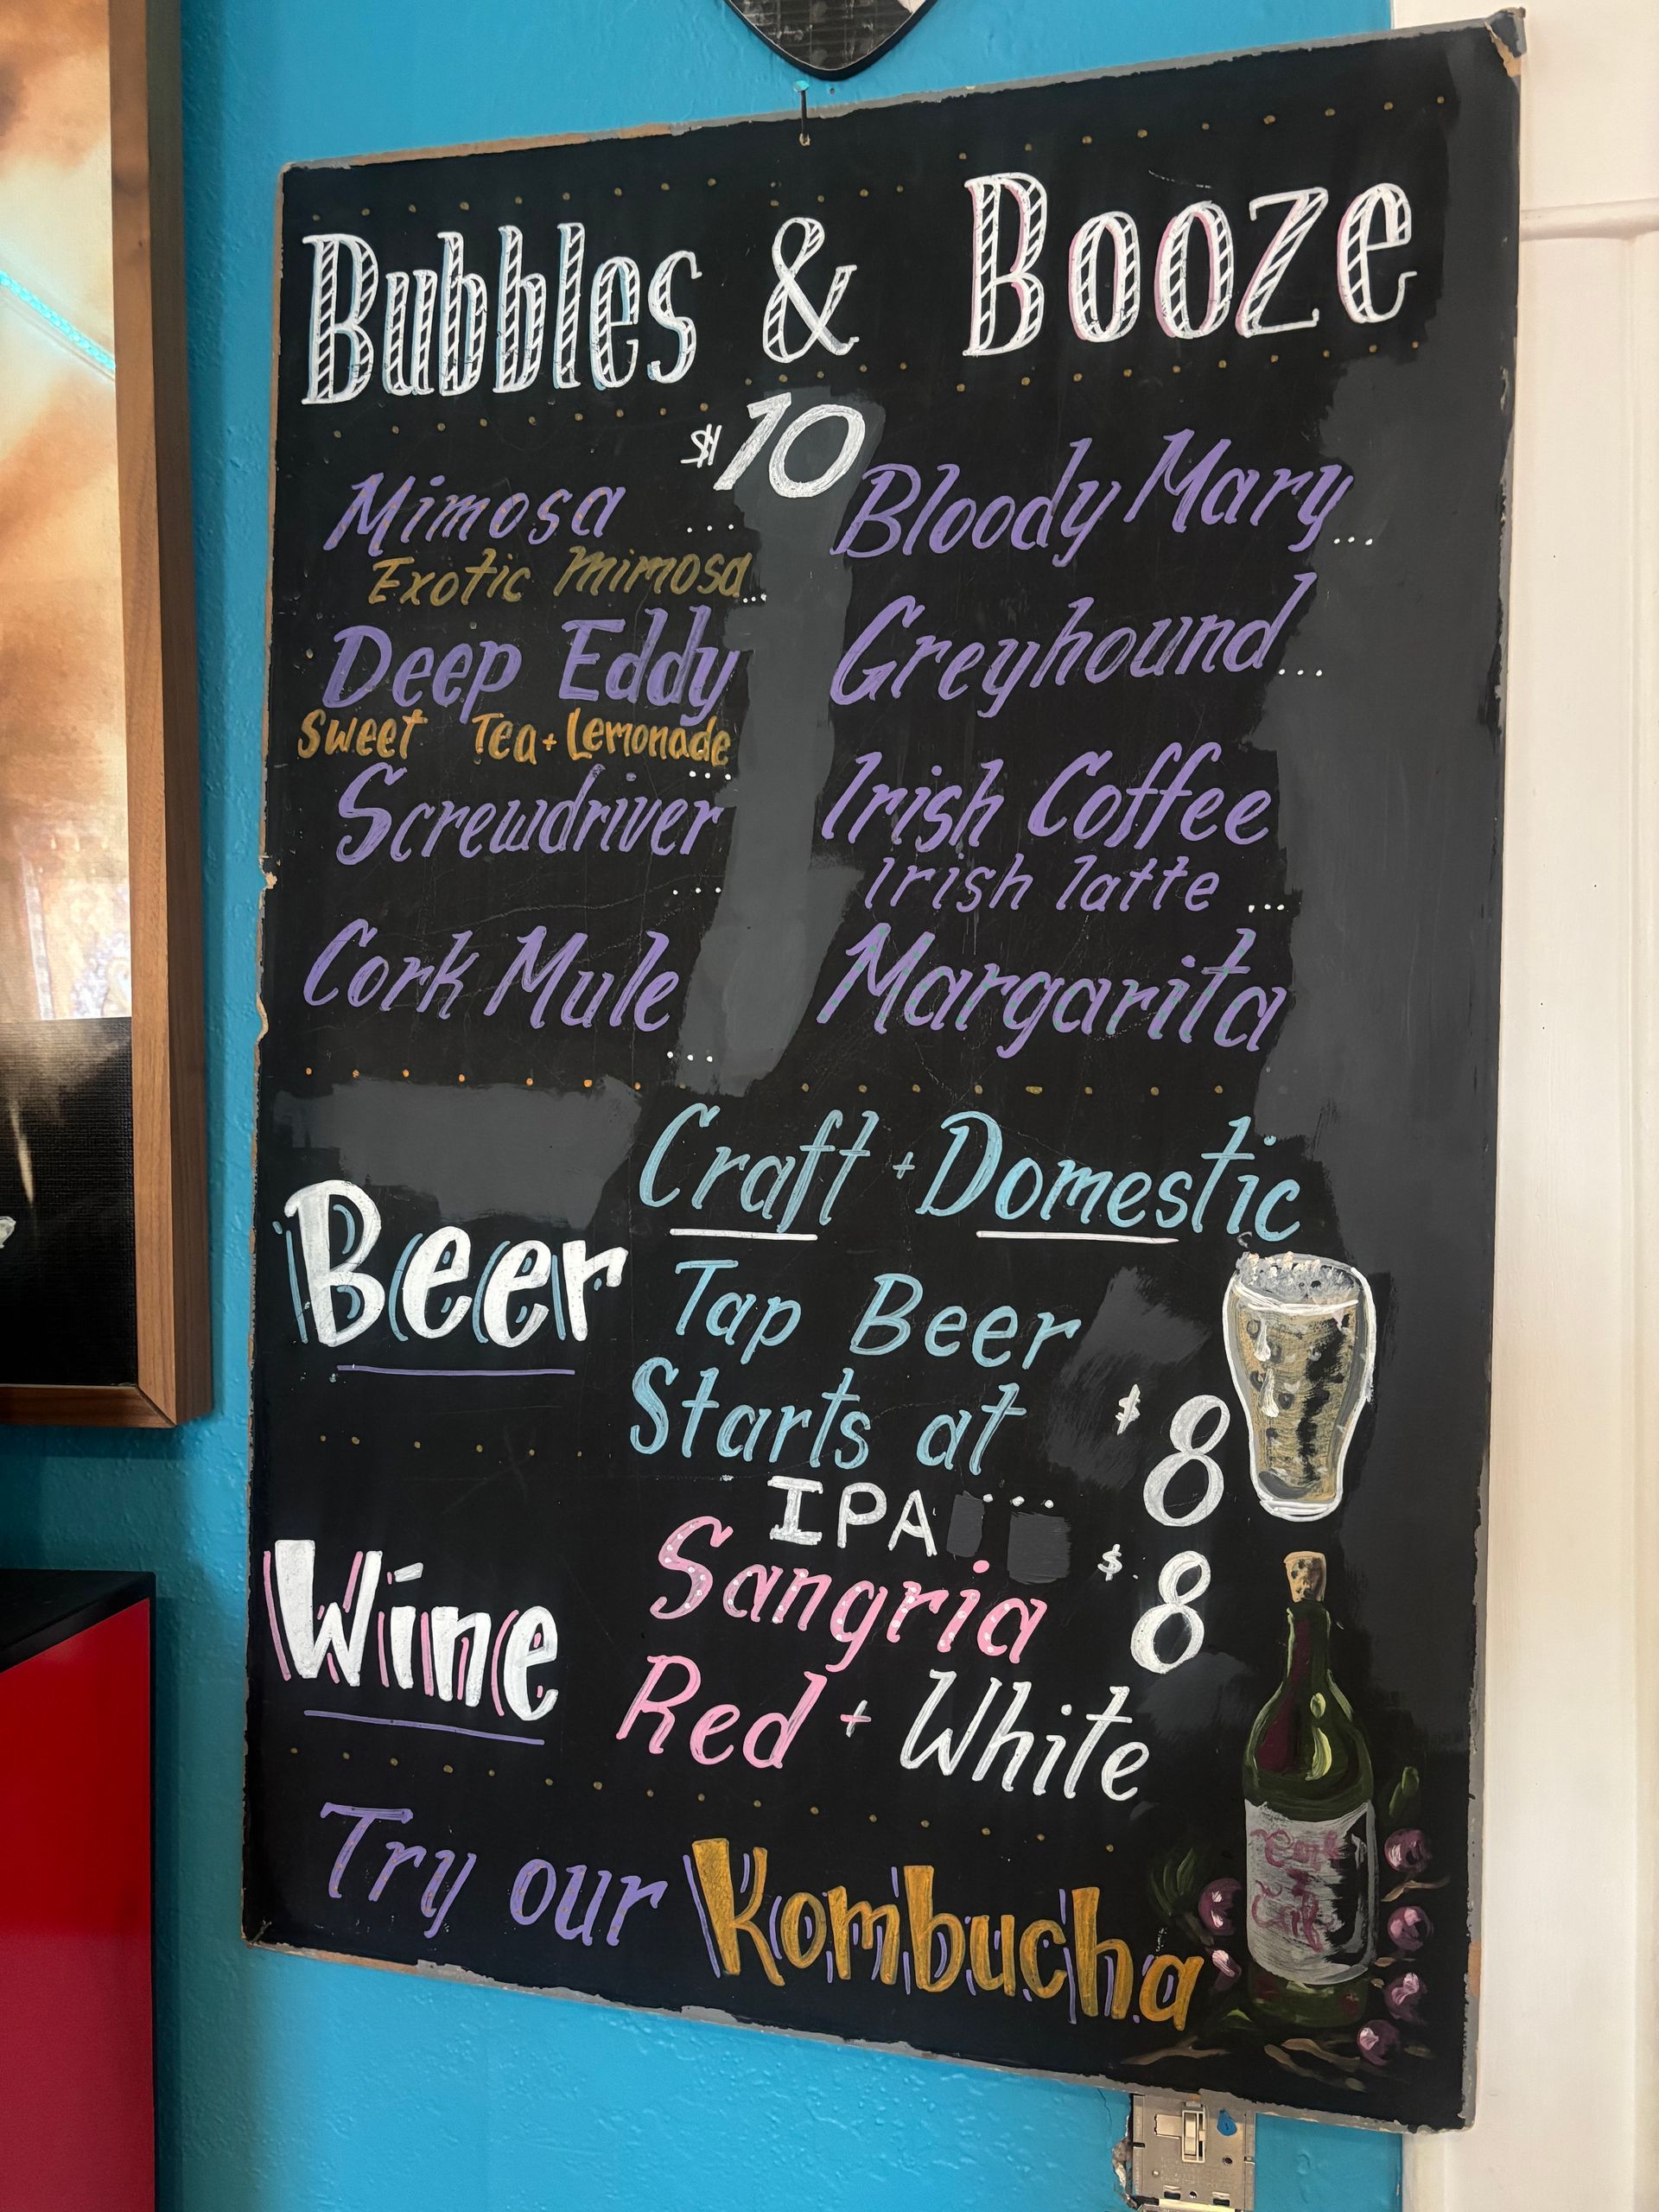 Bubbles & Booze
$10
Mimosa ...
Exotic Mimosa...
Deep Eddy
Sweet Tea + Lemonade
...
Screwdriver
...
Cork Mule
...
Bloody Mary...
Greyhound...
Irish Coffee
Irish latte ...
Margarita
Beer
Craft + Domestic
Tap Beer
Starts at $8
IPA ...
Wine
Sangria $8
Red + White
Try our Kombucha